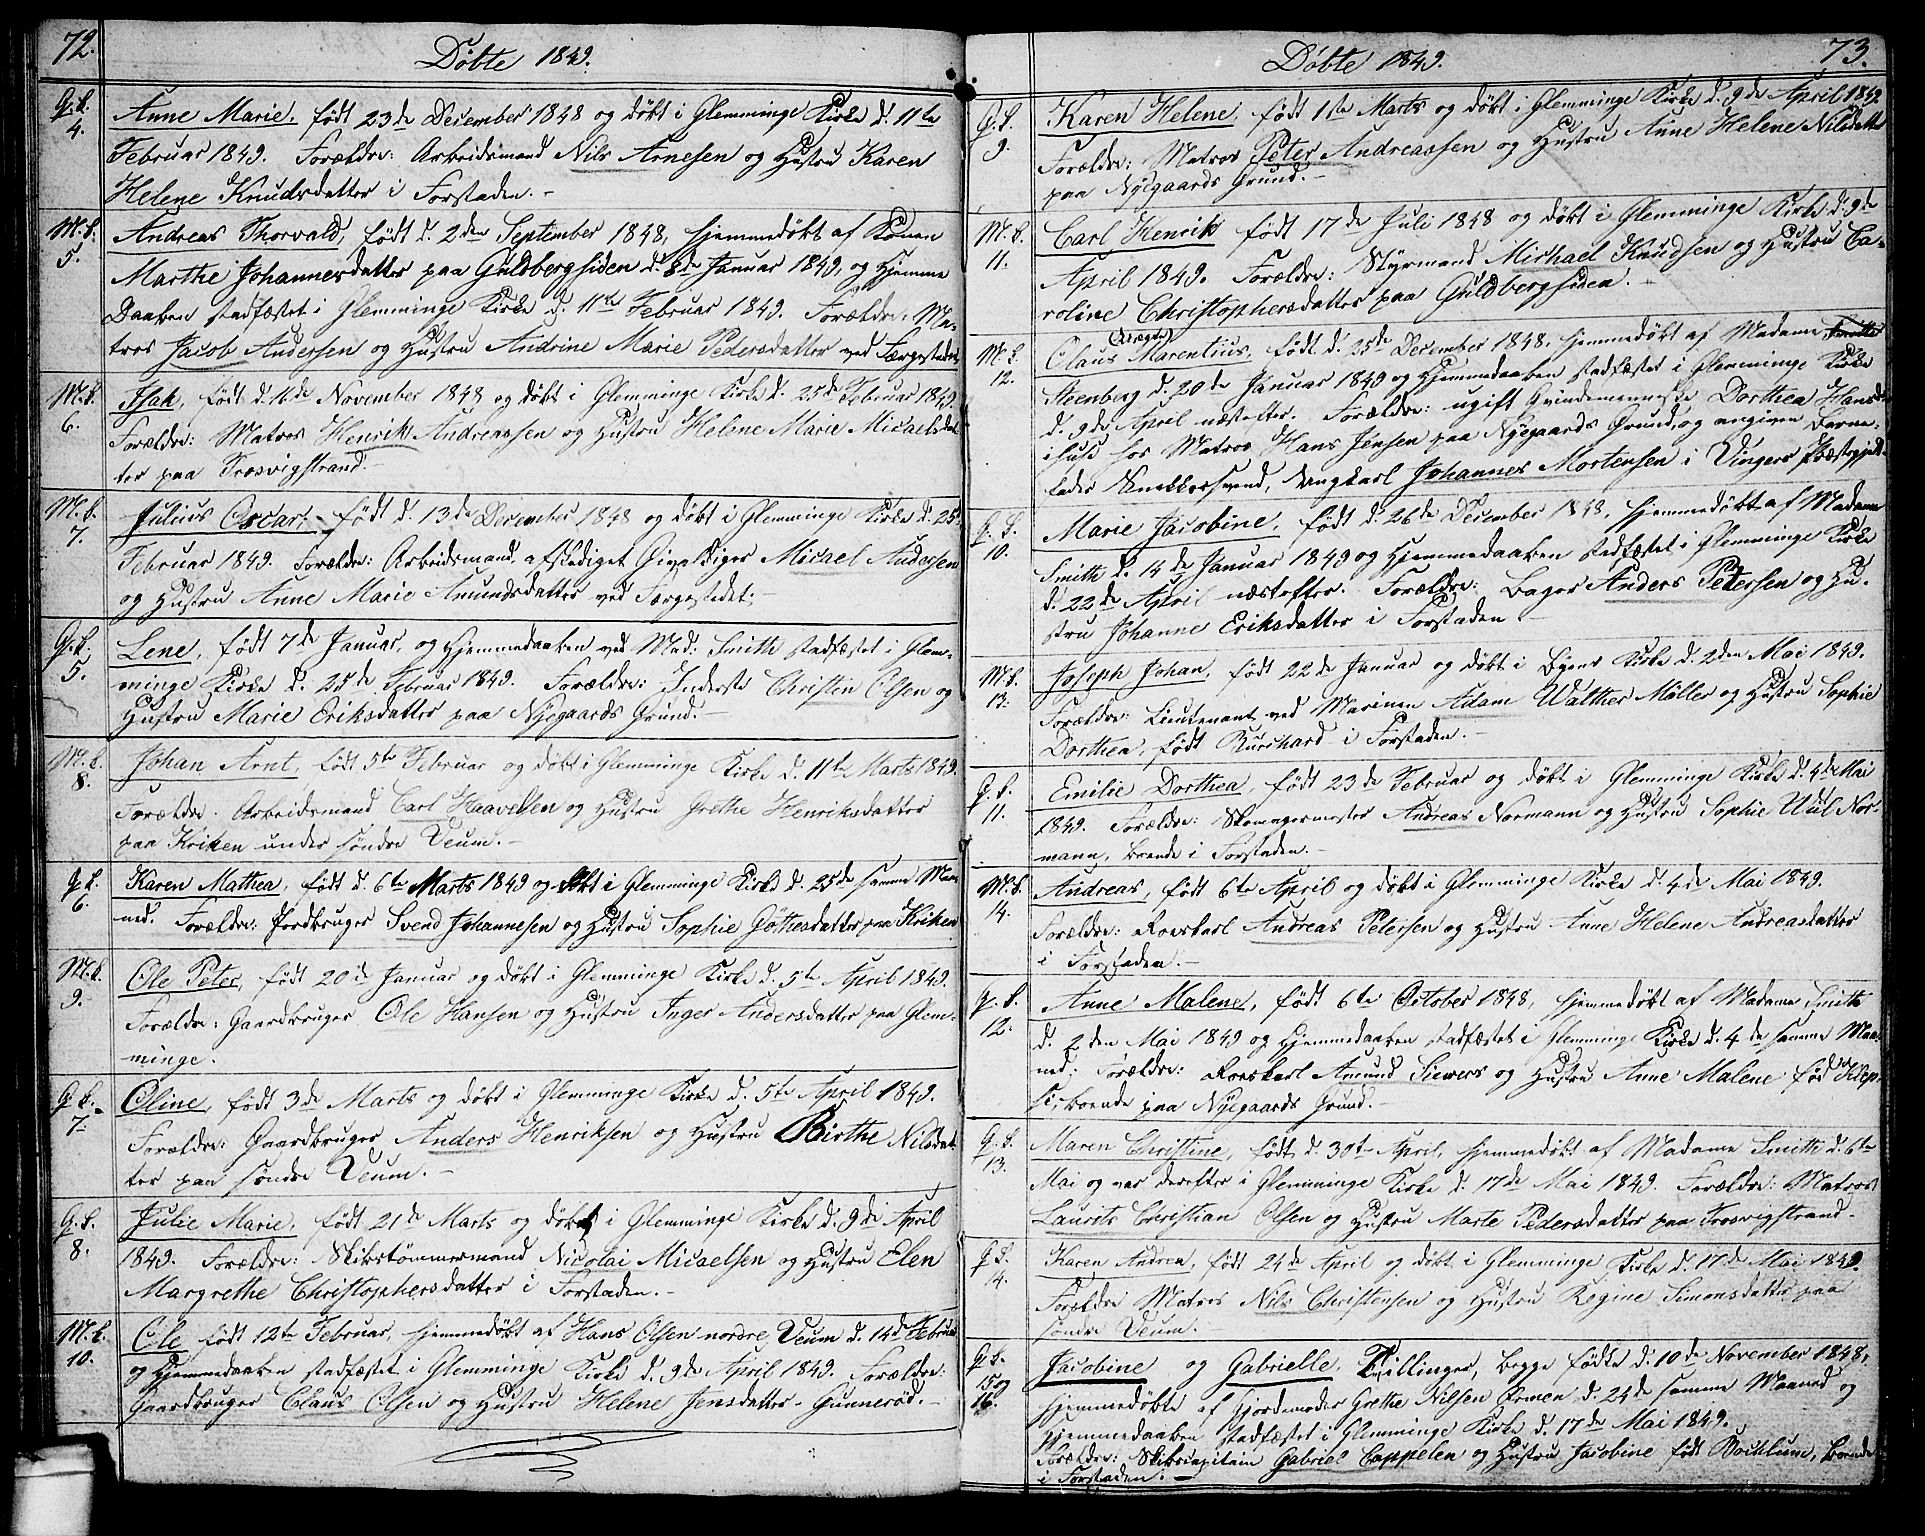 72.
Døbte 1849.
G. b.
4.
Anne Marie, født 23de December 1848 og døbt i Glemminge Kirke d. 11te
Februar 1849. Forældre: Arbeidsmand Nils Arnesen og Hustru Karen
Helene Knudsdatter i Forstaden. –
M. b.
5.
Andreas Thorvald, født d. 2den September 1848, hjemmedøbt af Konen
Marthe Johannesdatter paa Guldbergsiden d. 8de Januar 1849, og Hjemme
Daaben stadfæstet i Glemminge Kirke d. 11te Februar 1849. Forældre: Ma-
tros Jacob Andersen og Hustru Andrine Marie Pedersdatter ved Færgestedet.
M. b.
6.
Isak, født d. 16de November 1848 og døbt i Glemminge Kirke d. 25de Februar 1849.
Forældre: Matros Henrik Andreassen og Hustru Helene Marie Micaelsdat-
ter paa Trosvigstrand.
M. b.
7.
Julius Oscar, født d. 13de December 1848 og døbt i Glemminge Kirke d. 25de
Februar 1849. Forældre: Arbeidsmand, afskediget Givaldiger Micael Andersen
og Hustru Anne Marie Amundsdatter ved Færgestedet. –
G. b.
5.
Lene, født 7de Januar, og Hjemmedaaben ved Mad: Smith stadfæstet i Glem-
minge Kirke d. 25de Februar 1849. Forældre: Inderste Christen Olsen og
Hustru Marie Eriksdatter paa Nyegaards Grund. –
M. b.
8.
Johan Arnt, født 5te Februar og døbt i Glemminge Kirke d. 11te Marts 1849.
Forældre: Arbeidsmand Carl Haavelsen og Hustru Grethe Henriksdatter
paa Kriken under søndre Veum. –
G. b.
6.
Karen Mathea, født d. 6te Marts 1849 og døbt i Glemminge Kirke d. 25de samme Maa-
ned. Forældre: Jordbruger Svend Johannesen og Hustru Sophie Göthesdatter paa Kriken
M. b.
9.
Ole Peter, født 20de Januar og døbt i Glemminge Kirke d. 5te April 1849.
Forældre: Gaardbruger Ole Hansen og Hustru Inger Andersdatter paa Glem-
minge.
G. b.
7.
Oline, født 3de Marts og døbt i Glemminge Kirke d. 5te April 1849.
Forældre: Gaardbruger Anders Henriksen og Hustru Birthe Nilsdat-
ter paa søndre Veum. –
G. b.
8.
Julie Marie, født 21de Marts og døbt i Glemminge Kirke d. 9de April
1849. Forældre: Skibstømmermand Nicolai Micaelsen og Hustru Elen
Margrethe Christophersdatter i Forstaden. –
M. b.
10.
Ole født 12te Februar, hjemmedøbt af Hans Olsen nordre Veum d. 14de Februar
og Hjemmedaaben stadfæstet i Glemminge Kirke d. 9de April 1849. Forældre:
Gaardbruger Claus Olsen og Hustru Helene Jensdatter – Gunnerød. –
73.
Døbte 1849.
G. b.
9.
Karen Helene, født 1te Marts og døbt i Glemminge Kirke d. 9de April 1849.
Forældre: Matros Peter Andreassen og Hustru Anne Helene Nilsdatter
paa Nyegaards Grund. –
M. b.
11.
Carl Henrik født 17de Juli 1848 og døbt i Glemminge Kirke d. 9de
April 1849. Forældre: Styrmand Michael Knudsen og Hustru Ca-
roline Christophersdatter paa Guldbergsiden. –
M. b.
12.
(uægte)
Claus Marentius, født d. 25de December 1848, hjemmedøbt af Madame
Steenberg d. 20de Januar 1849 og Hjemmedaaben stadfæstet i Glemminge Kirke
d. 9de April næstefter. Forældre: ugift Qvindemenneske Dorthea Hansd.
i huset hos Matros Hans Jensen paa Nyegaards Grund, og angiven Barne-
fader Snekkersvend, Ungkarl Johannes Mortensen i Vingers Præstegjeld.
G. b.
10.
Marie Jacobine, født d. 26de December 1848, hjemmedøbt af Madame
Smith d. 14de Januar 1849 og Hjemmedaaben stadfæstet i Glemminge Kirke
d. 22de April næstefter. Forældre: Bager Anders Petersen og Hu-
stru Johanne Eriksdatter i Forstaden –
M. b.
13.
Joseph Johan, født 22de Januar og døbt i Byens Kirke d. 2den Mai 1849.
Forældre: Lieutenant ved Marinen Adam Walther Müller og Hustru Sophie
Dorthea, født Burchard i Forstaden. –
G. b.
11.
Emilie Dorthea, født 23de Februar og døbt i Glemminge Kirke d. 4de Mai
1849. Forældre: Skomagermester Andreas Normann og Hustru Sophie Uul Nor-
mann, boende i Forstaden. –
M. b.
14.
Andreas, født 6te April og døbt i Glemminge Kirke d. 4de Mai 1849.
Forældre: Roerskarl Andreas Petersen og Hustru Anne Helene Andreasdatter
i Forstaden. –
G. b.
12.
Anne Malene, født 6te October 1848, hjemmedøbt af Madame Smith
d. 2den Mai 1849 og Hjemmedaaben stadfæstet i Glemminge Kirke d. 4de samme Maa-
ned. Forældre: Roerskarl Amund Siewers og Hustru Anne Malene fød Klep-
, boende paa Nyegaards Grund. –
G. b.
13.
Maren Christine, født d. 30te April, hjemmedøbt af Madame Smith d. 6te
Mai og var derefter i Glemminge Kirke d. 17de Mai 1849. Forældre: Matros
Laurits Christian Olsen og Hustru Marte Pedersdatter paa Trosvigstrand. –
G. b.
14.
Karen Andrea, født 24de April og døbt i Glemminge Kirke d. 17de Mai 1849.
Forældre Matros Nils Christensen og Hustru Regine Simonsdatter paa
søndre Veum.
G. b.
15 og
16.
Jacobine og Gabrielle. Tvillinger, begge fødte d. 10de November 1848,
hjemmedøbte af Gjordemoder Grethe Nilsen Ormen d. 24de samme Maaned og
Hjemmedaaben stadfæstet i Glemminge Kirke d. 17de Mai 1849.
Forældre: Skibscapitain Gabriel Cappelen og Hustru Jacobine født Bochlum, boende
i Forstaden. –